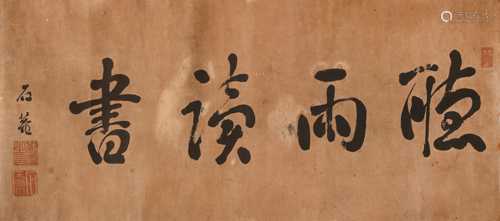 聽雨讀書
石菴